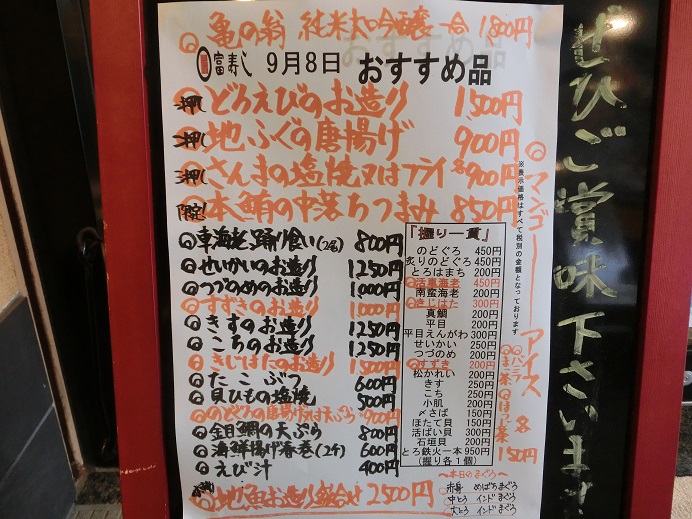 亀の翁 純米大吟醸 一合 1,800円
富寿し 9月8日 おすすめ品
一押し どろえびのお造り 1,500円
二押し 地ふぐの唐揚げ 900円
三押し さんまの塩焼又はフライ 各900円
限定 本鮪の中落ちつまみ 850円
車海老踊り食い(2尾) 800円
せいかいのお造り 1,250円
つづのめのお造り 1,000円
すずきのお造り 1,000円
きすのお造り 1,250円
こちのお造り 1,250円
きじはたのお造り 1,500円
たこぶつ 600円
貝ひもの塩焼 500円
のどぐろの唐揚げ又は天ぷら 900円
金目鯛の天ぷら 800円
海鮮揚げ春巻(2ケ) 600円
えび汁 400円
地魚お造り盛合せ 2500円
『握り一貫』
のどぐろ 450円
炙りのどぐろ 450円
とろはまち 200円
活車海老 450円
南蛮海老 200円
きじはた 300円
真鯛 200円
平目 200円
平目えんがわ 300円
せいかい 250円
つづのめ 200円
すずき 200円
松かれい 200円
きす 250円
こち 250円
小肌 200円
〆さば 150円
ほたて貝 150円
活ばい貝 300円
石垣貝 200円
とろ鉄火一本 950円
(握り各1個)
〜本日のまぐろ〜
赤身 めばちまぐろ
中とろ インドまぐろ
大とろ インドまぐろ
※表示価格はすべて税別の金額となっております
マンゴーアイス
バニラ
抹茶
ほうじ茶
各150円
ぜひご賞味下さいませ